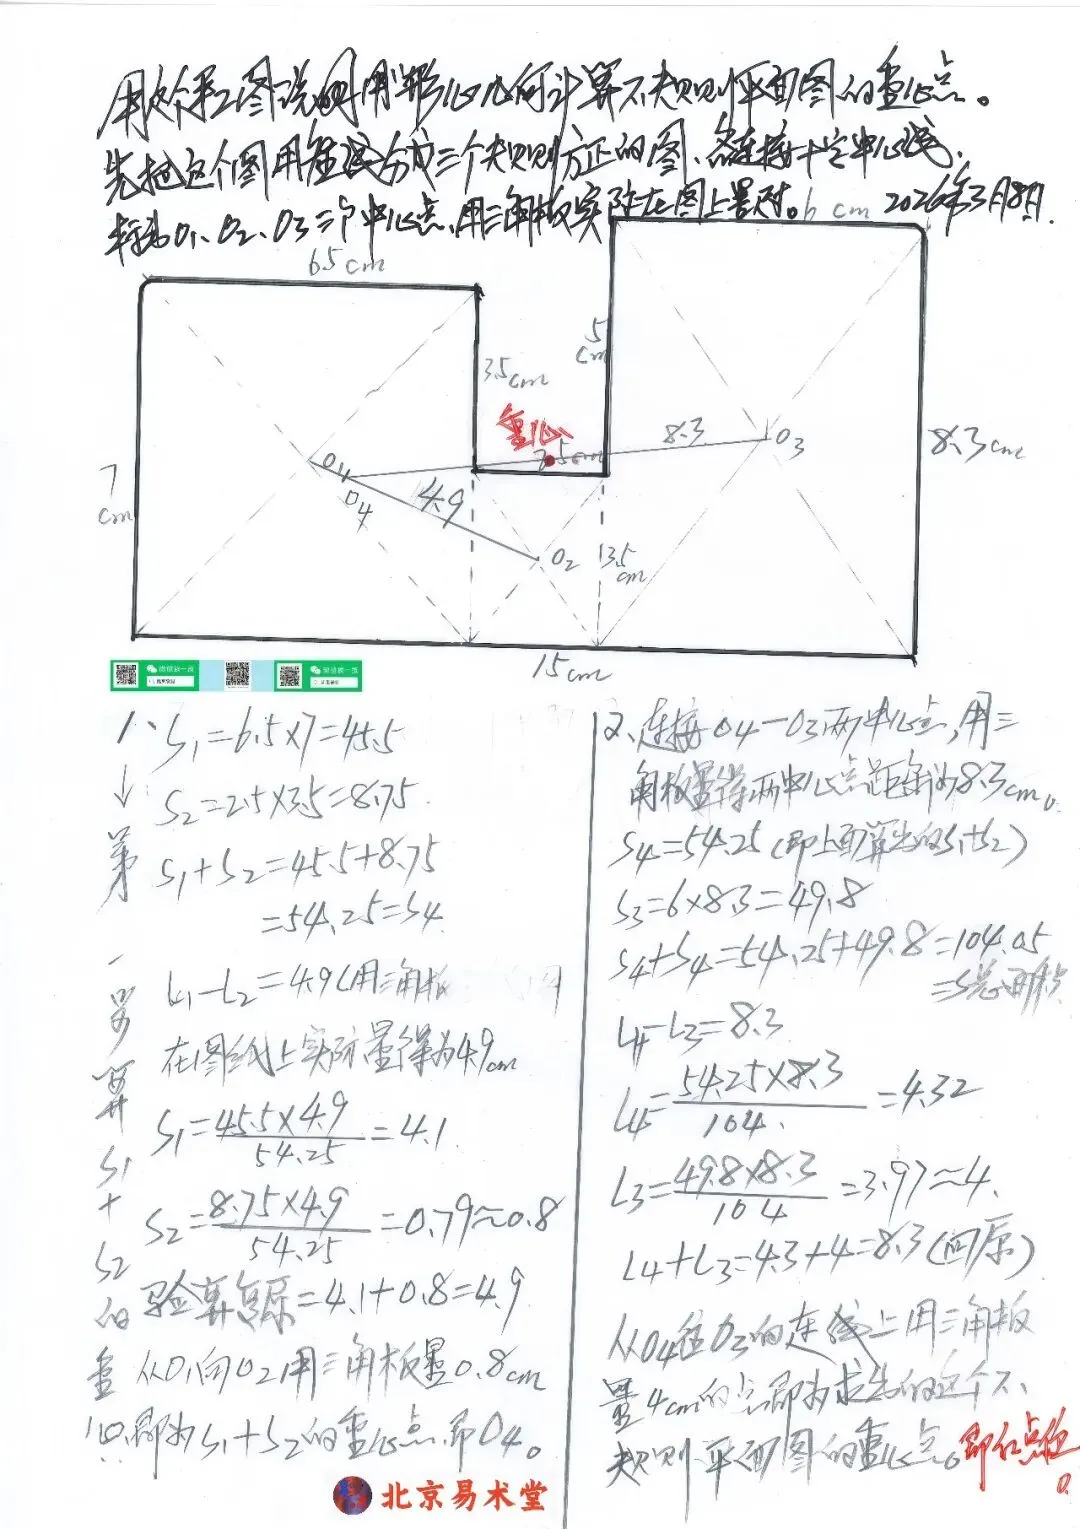 用这个手工图说明用坐形心几何计算不规则平面图的重心点。
先把这个图用虚线分为三个规则方正的图、各连接十字中心线,
标为O1、O2、O3三个中心点,用三角板实际在图上量对。 2026年3月8日.
6cm
6.5cm
5cm
3.5cm
重心
8.3
O3
8.3cm
2.5cm
7cm
O4
O4
4.9
O2
3.5cm
15cm
1、S1=6.5×7=45.5
S2=2.5×3.5=8.75
S1+S2=45.5+8.75
=54.25=S4
L1-L2=4.9(用三角板
在图纸上实际量得为4.9cm
S1=45.5×4.9/54.25=4.1.
S2=8.75×4.9/54.25=0.79≈0.8
验算复原=4.1+0.8=4.9
从O1向O2用三角板量0.8cm
即为S1+S2的重心点即O4。
↓第一步算S1+S2的重心
2、连接O4-O3两中心点,用三
角板量得两中心点距离为8.3cm。
S4=54.25(即上面算出的S1+S2)
S3=6×8.3=49.8
S4+S4=54.25+49.8=104.05
=S总面积
L4-L3=8.3
L4=54.25×8.3/104.=4.32
L3=49.8×8.3/104=3.97≈4.
L4+L3=4.3+4=8.3(回原)
从O4往O3的连线上用三角板
量4cm的点即为求出的这个不
规则平面图的重心点。即红点位。
北京易术堂